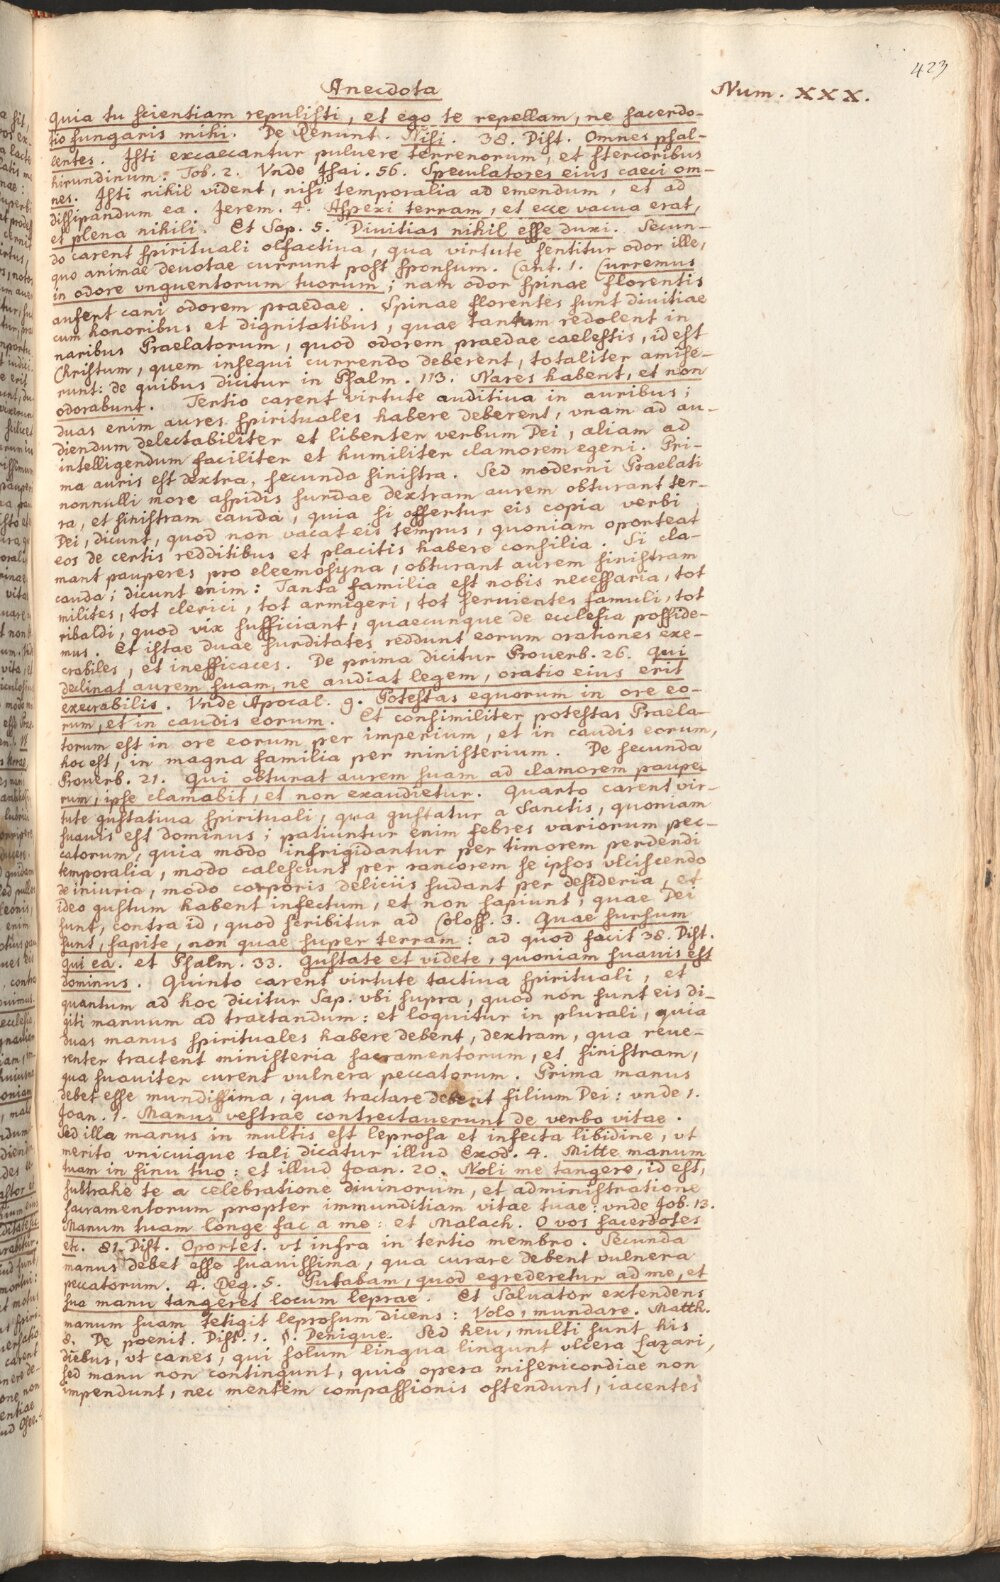 423
Anecdota
Num. XXX.
quia tu scientiam repulisti, et ego te repellam, ne sacerdo-
tio fungaris mihi. De Renunt. Nisi. 38. Dist. Omnes psal-
lentes. Isti excaecantur puluere terrenorum, et stercoribus
hirundinum. Tob. 2. Vnde Isai. 56. Speculatores eius caeci om-
nes. Isti nihil vident, nisi temporalia ad emendum, et ad
dissipandum ea. Jerem. 4. Aspexi terram, et ecce vacua erat,
et plena nihili. Et Sap. 5. Diuitias nihil esse duxi. Secun-
do carent spirituali olfactiua, qua virtute sentitur odor ille,
quo animae deuotae currunt post sponsum. Cant. 1. Curremus
in odore vnguentorum tuorum; nam odor spinae florentis
aufert cani odorem praedae. Spinae florentes sunt diuitiae
cum honoribus et dignitatibus, quae tantum redolent in
naribus Praelatorum, quod odorem praedae caelestis, id est
Christum, quem insequi currendo deberent, totaliter amise-
runt: de quibus dicitur in Psalm. 113. Nares habent, et non
odorabunt. Tertio carent virtute auditiua in auribus;
duas enim aures spirituales habere deberent, vnam ad au-
diendum delectabiliter et libenter verbum Dei, aliam ad
intelligendum faciliter et humiliter clamorem egeni. Pri-
ma auris est dextra, secunda sinistra. Sed moderni Praelati
nonnulli more aspidis surdae dextram aurem obturant ter-
ra, et sinistram cauda, quia si offertur eis copia verbi
Dei, dicunt, quod non vacat eis tempus, quoniam oporteat
eos de certis redditibus et placitis habere consilia. Si cla-
mant pauperes pro eleemosyna, obturant aurem sinistram
cauda; dicunt enim: Tanta familia est nobis necessaria, tot
milites, tot clerici, tot armigeri, tot seruientes famuli, tot
ribaldi, quod vix sufficiant, quaecunque de ecclesia posside-
mus. Et istae duae surditates reddunt eorum orationes exe-
crabiles, et inefficaces. De prima dicitur Prouerb. 26. Qui
declinat aurem suam, ne audiat legem, oratio eius erit
execrabilis. Vnde Apocal. 9. Potestas equorum in ore eo-
rum, et in caudis eorum. Et consimiliter potestas Praela-
torum est in ore eorum per imperium, et in caudis eorum,
hoc est, in magna familia per ministerium. De secunda
Prouerb. 21. Qui obturat aurem suam ad clamorem paupe-
rum, ipse clamabit, et non exaudietur. Quarto carent vir-
tute gustatiua spirituali, qua gustatur a Sanctis, quoniam
suauis est dominus; patiuntur enim febres variorum pec-
catorum, quia modo infrigidantur per timorem perdendi
temporalia, modo calescunt per rancorem se ipsos vlciscendo
de iniuria, modo corporis deliciis sudant per desideria, et
ideo gustum habent infectum, et non sapiunt, quae Dei
sunt, contra id, quod scribitur ad Coloss. 3. Quae sursum
sunt, sapite, non quae super terram: ad quod facit 38. Dist.
Qui ea. et Psalm. 33. Gustate et videte, quoniam suauis est
dominus. Quinto carent virtute tactiua spirituali, et
quantum ad hoc dicitur Sap. vbi supra, quod non sunt eis di-
giti manuum ad tractandum: et loquitur in plurali, quia
duas manus spirituales habere debent, dextram, qua reue-
renter tractent ministeria sacramentorum, et sinistram,
qua suauiter curent vulnera peccatorum. Prima manus
debet esse mundissima, qua tractare debent filium Dei: vnde 1.
Joan. 1. Manus vestrae contrectauerunt de verbo vitae.
Sed illa manus in multis est leprosa et infecta libidine, vt
merito vnicuique tali dicatur illud Exod. 4. Mitte manum
tuam in sinu tuo: et illud Joan. 20. Noli me tangere, id est,
subtrahe te a celebratione diuinorum, et administratione
sacramentorum propter immunditiam vitae tuae: vnde Job. 13.
Manum tuam longe fac a me: et Malach. O vos sacerdotes
etc. 81. Dist. Oportet. vt infra in tertio membro. Secunda
manus debet esse suauissima, qua curare debent vulnera
peccatorum. 4. Reg. 5. Putabam, quod egrederetur ad me, et
sua manu tangeret locum leprae. Et Saluator extendens
manum suam tetigit leprosum dicens: Volo, mundare. Matth.
8. De poenit. Dist. 1. §. Denique. Sed heu, multi sunt his
diebus, vt canes, qui solum lingua lingunt vlcera Lazari,
sed manu non contingunt, quia opera misericordiae non
impendunt, nec mentem compassionis ostendunt, iacentes